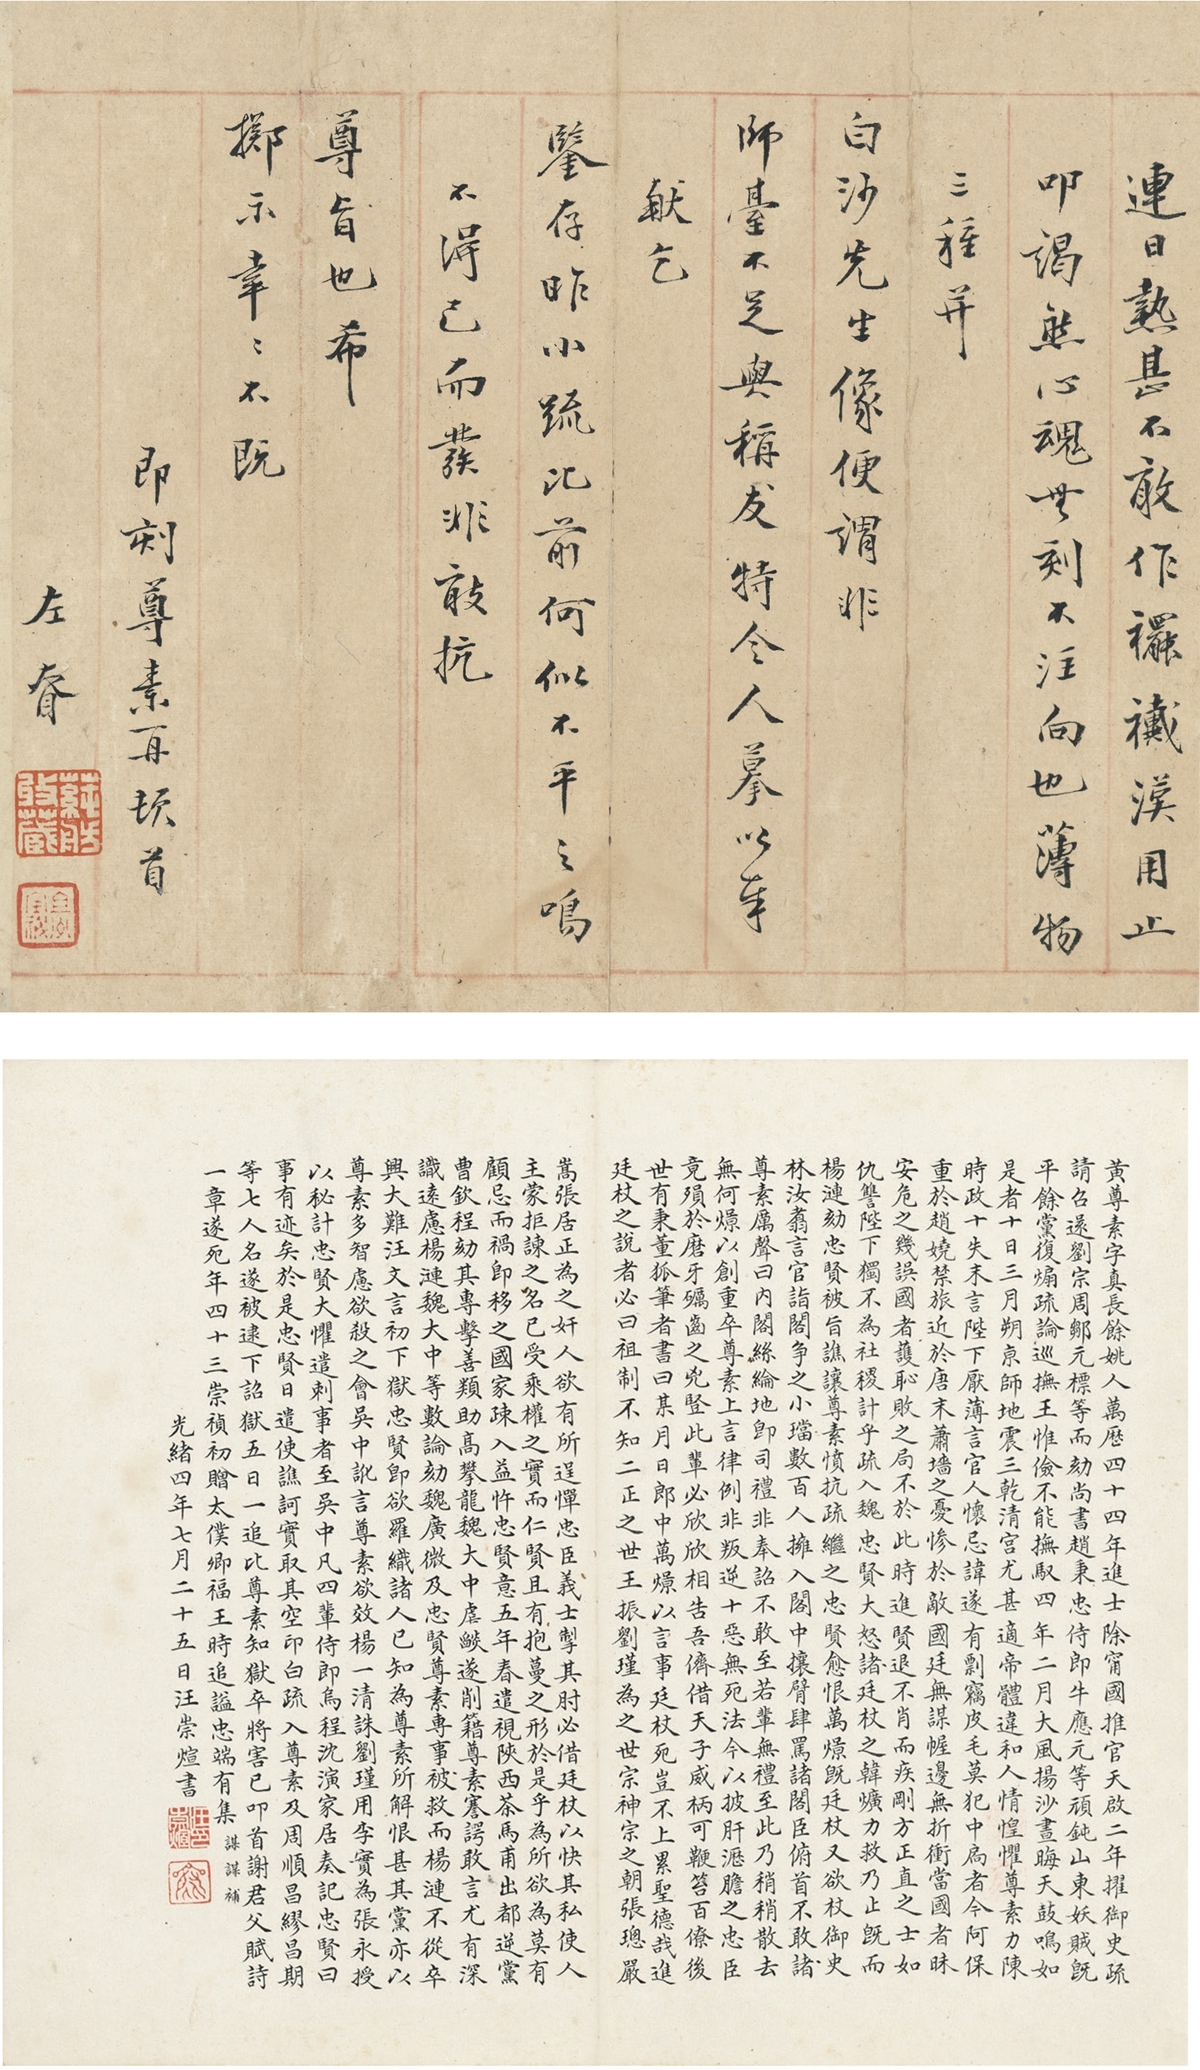 連日熱甚不敢作襶漢用止
叩謁無心魂無刻不注向也薄物
三種并
白沙先生像便謂非
師臺不足與稱友特令人摹以奉
獻乞
鑒存昨小疏比前何似不平之鳴
不得已而發非敢抗
尊旨也希
擲示幸〻不既
即刻尊素再頓首
左 眘
黃尊素字真長餘姚人萬歷四十四年進士除甯國推官天啟二年擢御史疏
請召還劉宗周鄒元標等而劾尚書趙秉忠侍郎牛應元等頑鈍山東妖賊既
平餘黨復煽疏論巡撫王惟儉不能撫馭四年二月大風揚沙晝晦天鼓鳴如
是者十日三月朔京師地震三乾清宮尤甚適帝體違和人情惶懼尊素力陳
時政十失末言陛下厭薄言官人懷忌諱遂有剽竊皮毛莫犯中扃者今阿保
重於趙嬈禁旅近於唐末蕭墻之憂慘於敵國廷無謀幄邊無折衝當國者昧
安危之幾誤國者護恥敗之局不於此時進賢退不肖而疾剛方正直之士如
仇讐陛下獨不為社稷計乎疏入魏忠賢大怒諸廷杖之韓爌力救乃止既而
楊漣劾忠賢被旨譙讓尊素憤抗疏繼之忠賢愈恨萬燝既廷杖又欲杖御史
林汝翥言官詣閣争之小璫數百人擁入閣中攘臂肆罵諸閣臣俯首不敢諸
尊素厲聲曰内閣絲綸地卽司禮非奉詔不敢至若輩無禮至此乃稍稍散去
無何燝以創重卒尊素上言律例非叛逆十惡無死法今以披肝瀝膽之忠臣
竟殞於磨牙礪齒之兇豎此輩必欣欣相告吾儕借天子威柄可鞭笞百僚後
世有秉董狐筆者書曰某月日郎中萬燝以言事廷杖死豈不上累聖德哉進
廷杖之說者必曰祖制不知二正之世王振劉瑾為之世宗神宗之朝張璁嚴
嵩張居正為之奸人欲有所逞憚忠臣義士掣其肘必借廷杖以快其私使人
主蒙拒諫之名已受乘權之實而仁賢且有抱蔓之形於是乎為所欲為莫有
顧忌而禍卽移之國家疎入益忤忠賢意五年春遣視陝西茶馬甫出都逆黨
曹欽程劾其專擊善類助高攀龍魏大中虐燄遂削籍尊素謇諤敢言尤有深
識遠慮楊漣魏大中等數論劾魏廣微及忠賢尊素專事被救而楊漣不從卒
興大難汪文言初下獄忠賢卽欲羅織諸人已知為尊素所解恨甚其黨亦以
尊素多智慮欲殺之會吳中訛言尊素欲效楊一清誅劉瑾用李實為張永授
以秘計忠賢大懼遣刺事者至吳中凡四輩侍郎烏程沈演家居奏記忠賢曰
事有迹矣於是忠賢日遣使譙訶實取其空印白疏入尊素及周順昌繆昌期
等七人名遂被逮下詔獄五日一追比尊素知獄卒將害已叩首謝君父賦詩
一章遂死年四十三崇禎初贈太僕卿福王時追謚忠端有集 謀謀補
光緒四年七月二十五日汪崇煊書